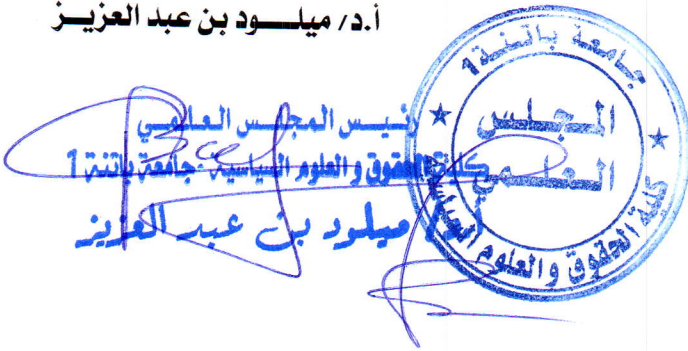 أ.د/ ميلـــود بن عبد العزيـــز
رئيس المجلس العلمي
كلية الحقوق و العلوم السياسية - جامعة باتنة 1
أ.د/ ميلود بن عبد العزيز
جامعة باتنة 1
المجلس
العلمي
كلية الحقوق والعلوم السياسية